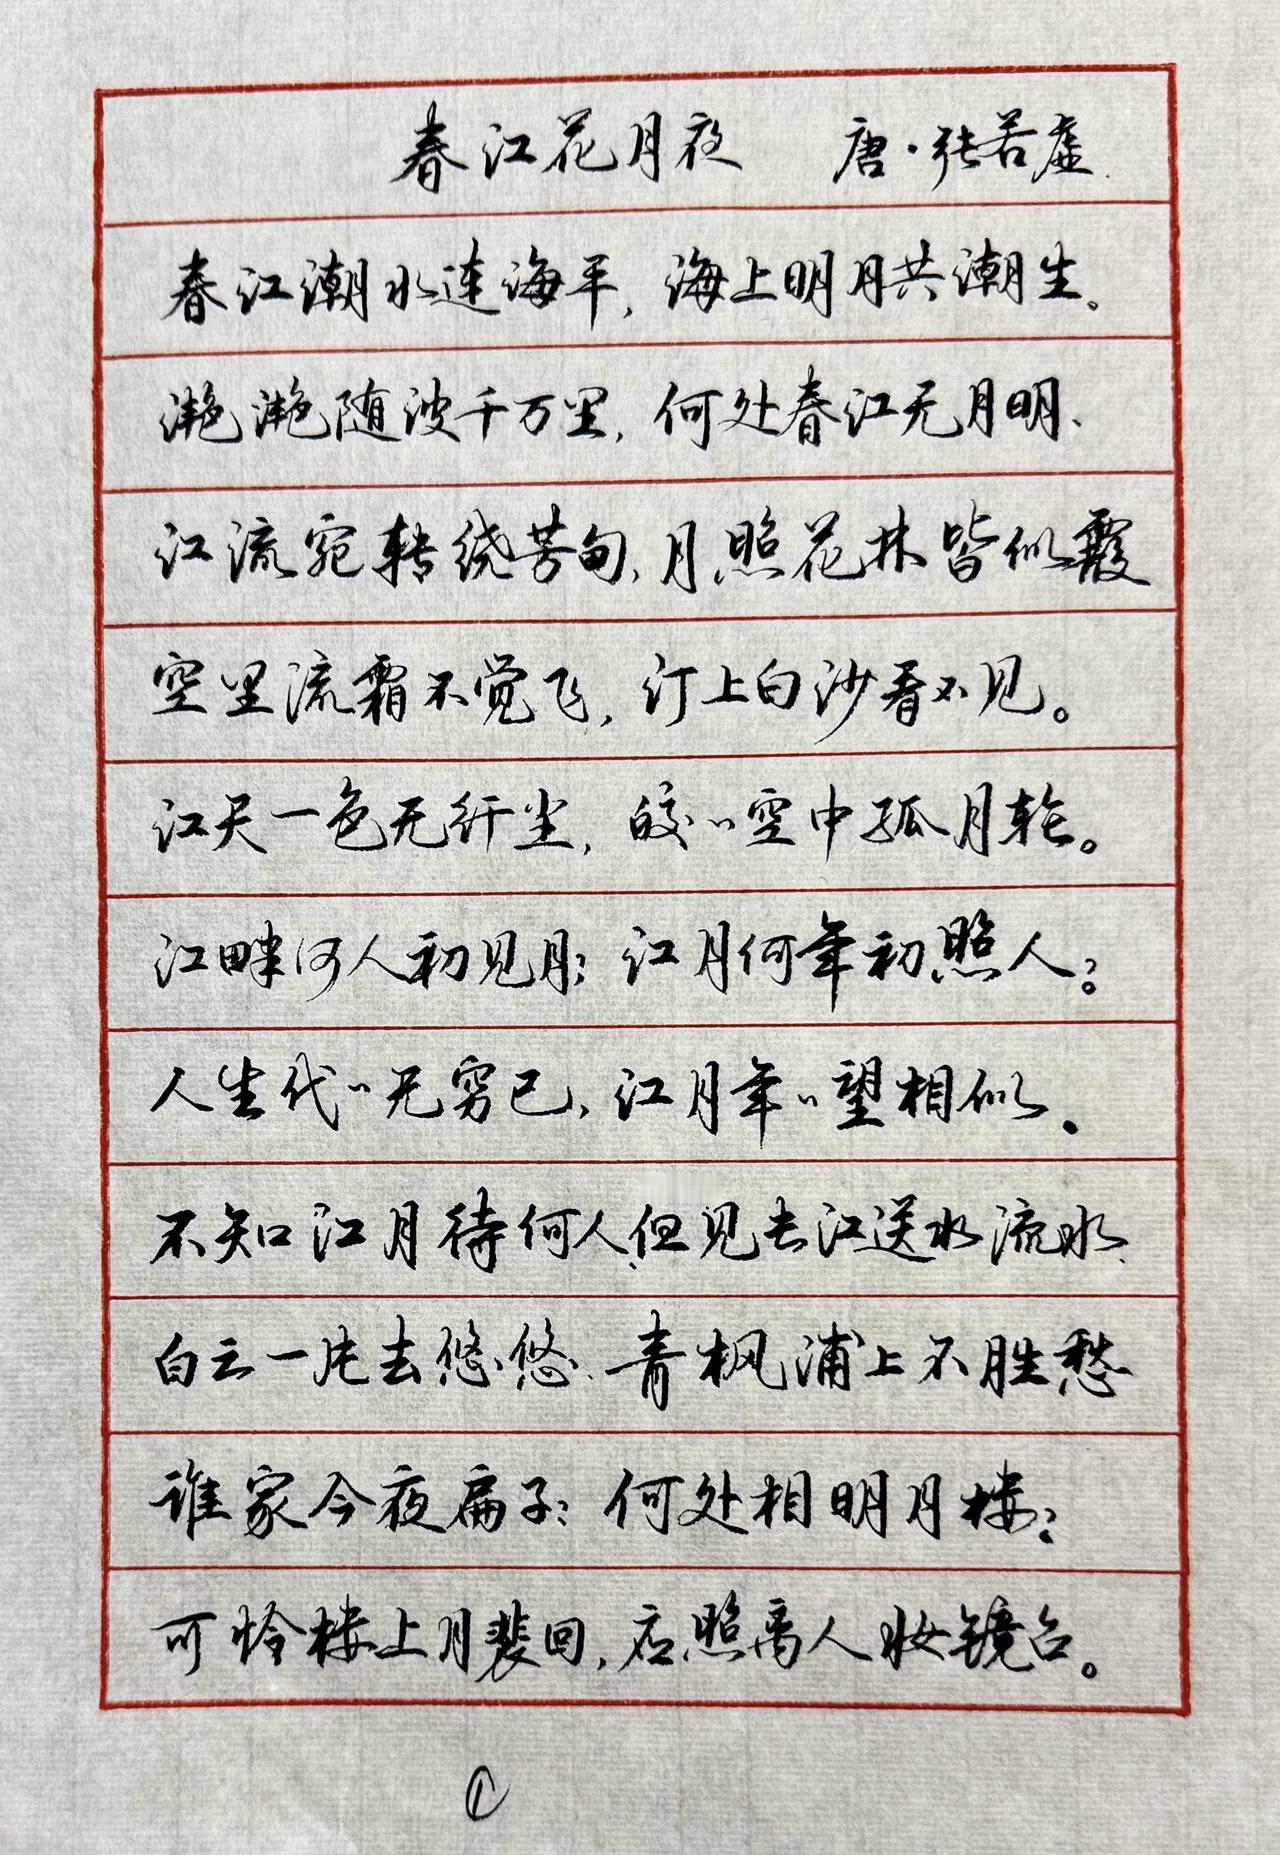 春江花月夜 唐·张若虚
春江潮水连海平,海上明月共潮生。
滟滟随波千万里,何处春江无月明、
江流宛转绕芳甸、月照花林皆似霰
空里流霜不觉飞,汀上白沙看不见。
江天一色无纤尘,皎〃空中孤月轮。
江畔何人初见月?江月何年初照人?
人生代〃无穷已,江月年〃望相似.
不知江月待何人、但见去江送水流水、
白云一片去悠悠、青枫浦上不胜愁
谁家今夜扁子?何处相明月楼?
可怜楼上月裴回,应照离人妆镜台。
①